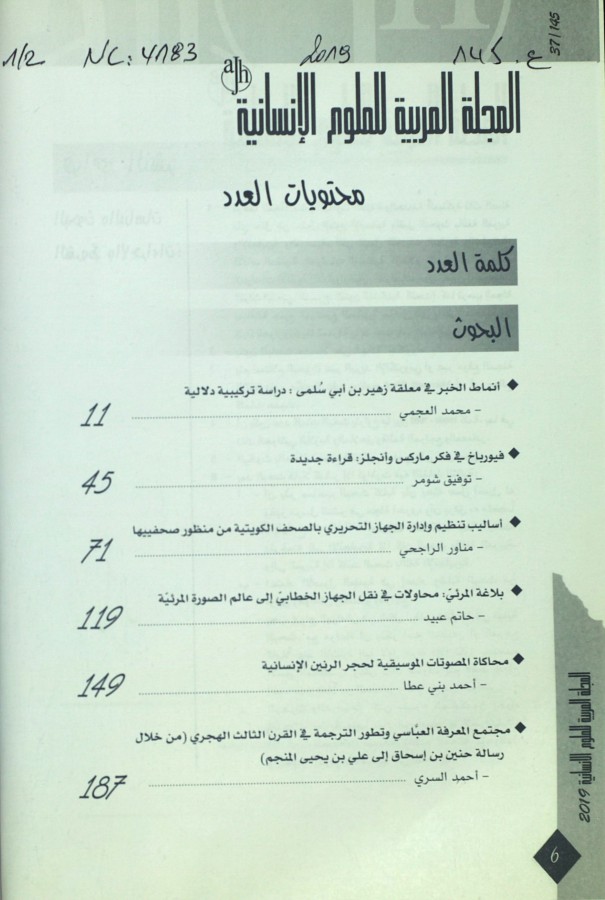 1/2 NC: 4183 2019 145 ع
37/145
ajh
المجلة العربية للعلوم الإنسانية
محتويات العدد
كلمة العدد
البحوث
◆ أنماط الخبر في معلقة زهير بن أبي سُلمى : دراسة تركيبية دلالية
– محمد العجمي ........ 11
◆ فيورباخ في فكر ماركس وأنجلز: قراءة جديدة
– توفيق شومر ........ 45
◆ أساليب تنظيم وإدارة الجهاز التحريري بالصحف الكويتية من منظور صحفييها
– مناور الراجحي ........ 71
◆ بلاغة المرئيّ: محاولات في نقل الجهاز الخطابيّ إلى عالم الصورة المرئيّة
– حاتم عبيد ........ 119
◆ محاكاة المصوتات الموسيقية لحجر الرنين الإنسانية
– أحمد بني عطا ........ 149
◆ مجتمع المعرفة العبّاسي وتطور الترجمة في القرن الثالث الهجري (من خلال
رسالة حنين بن إسحاق إلى علي بن يحيى المنجم)
– أحمد السري ........ 187
المجلة العربية للعلوم الإنسانية 2019
6